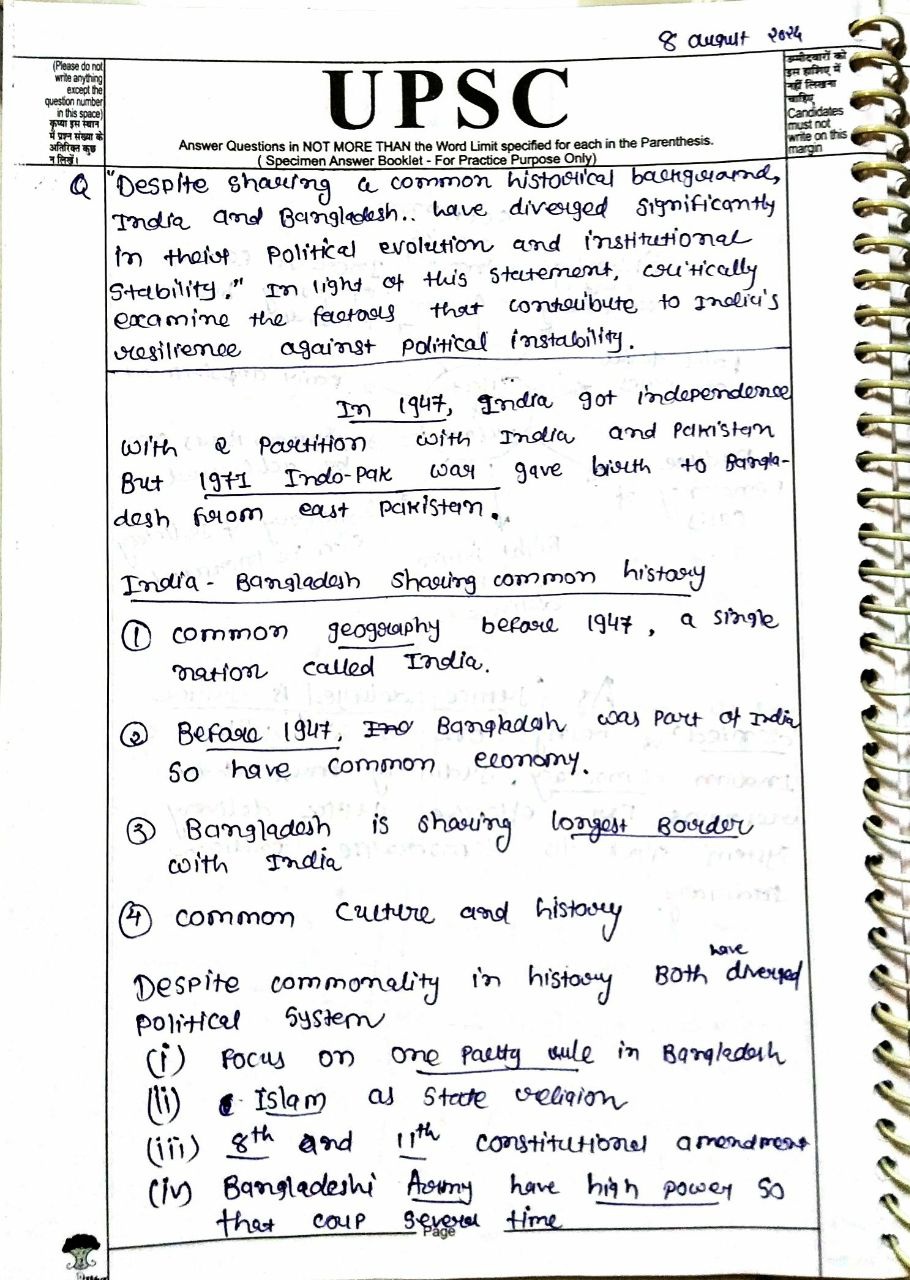 8 august २०२४
(Please do not
write anything
except the
question number
in this space)
कृप्या इस स्थान
में प्रश्न संख्या के
अतिरिक्त कुछ
न लिखें।
UPSC
Answer Questions in NOT MORE THAN the Word Limit specified for each in the Parenthesis.
( Specimen Answer Booklet - For Practice Purpose Only)
उम्मीदवारों को
इस हाशिए में
नहीं लिखना
चाहिए
Candidates
must not
write on this
margin
Q "Despite sharing a common historical background,
India and Bangladesh.. have diverged significantly
in their political evolution and institutional
stability." In light of this statement, critically
examine the factors that contribute to India's
resilience against political instability.
In 1947, India got independence
with a partition with India and Pakistan
But 1971 Indo-Pak war gave birth to Bangla-
desh from east Pakistan.
India - Bangladesh sharing common history
① common geography before 1947, a single
nation called India.
② Before 1947, Bangladesh was part of India
so have common economy.
③ Bangladesh is sharing longest Border
with India
④ common culture and history
Despite commonality in history Both have diverged
political system
(i) Focus on one party rule in Bangladesh
(ii) Islam as state religion
(iii) 8th and 11th constitutional amendment
(iv) Bangladeshi Army have high power so
that coup several time
Page